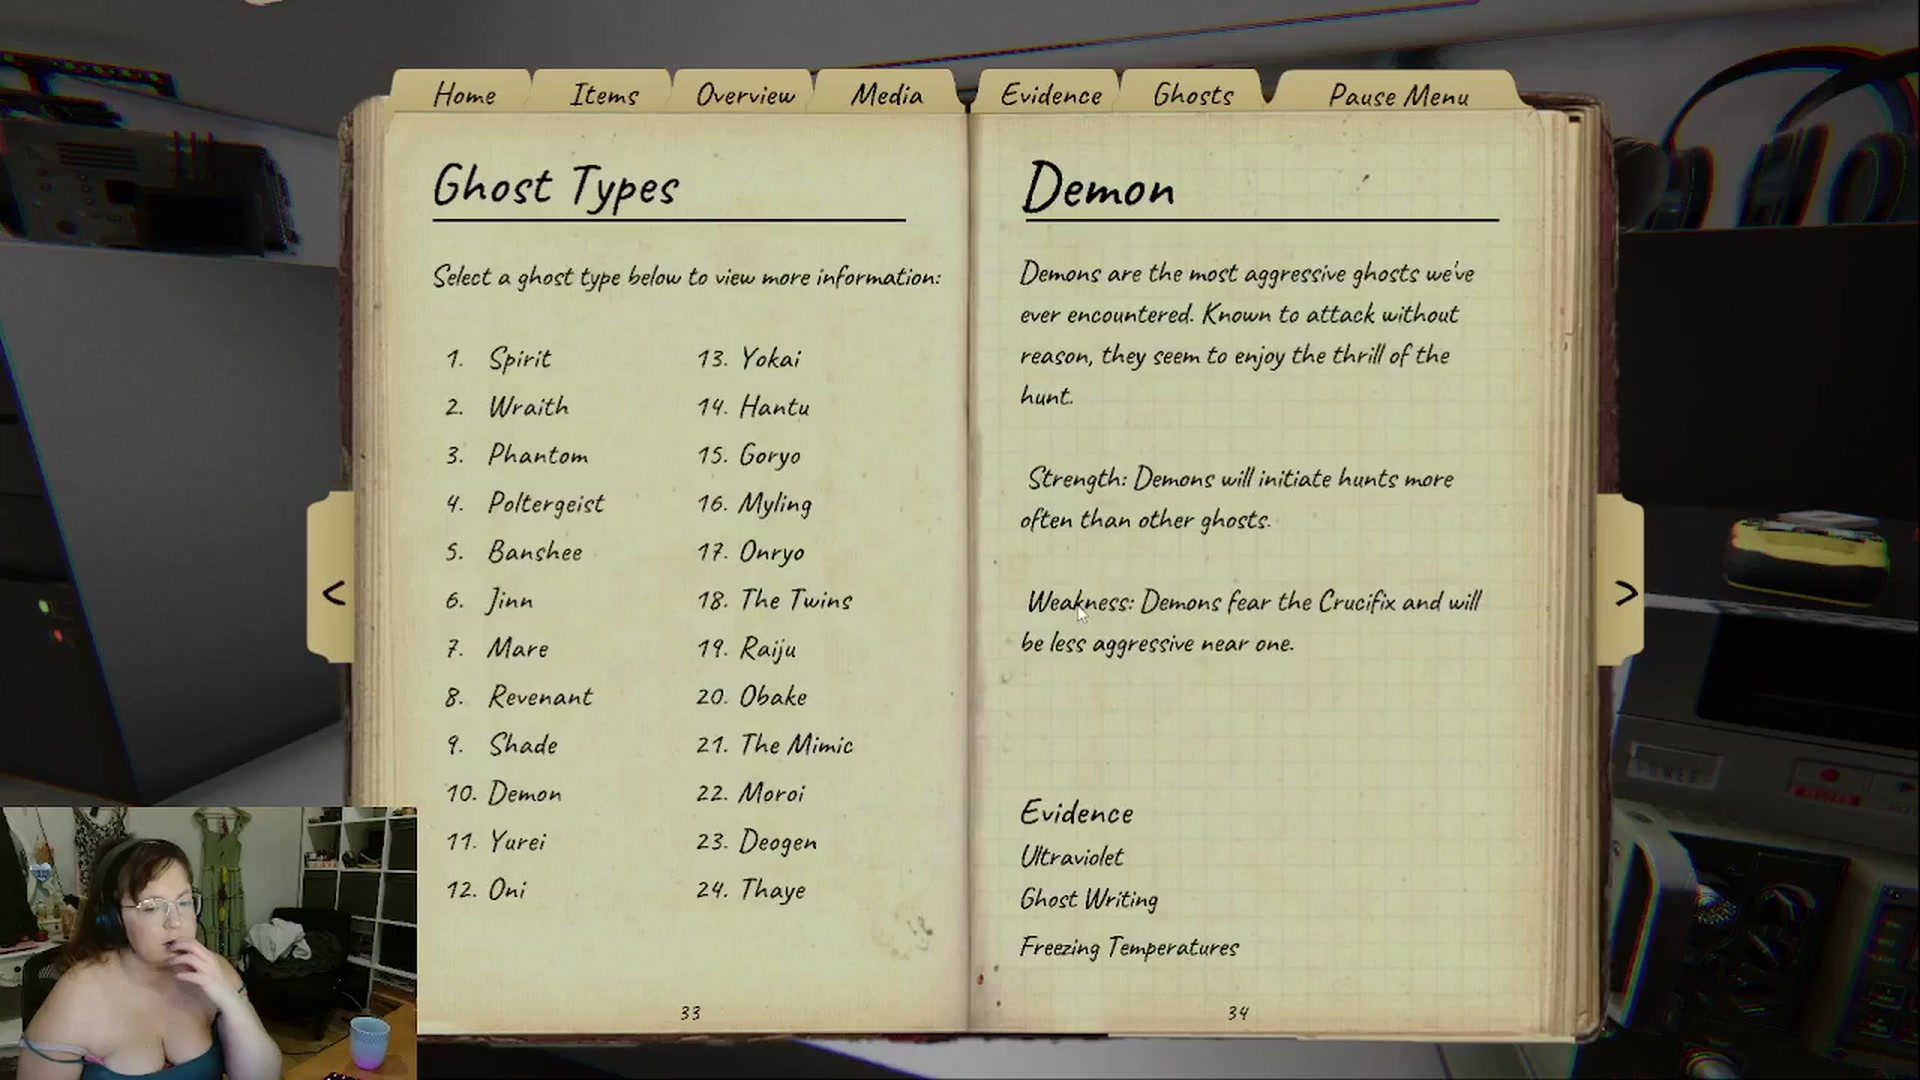 Home
Items
Overview
Media
Evidence
Ghosts
Pause Menu
Ghost Types
Select a ghost type below to view more information:
1. Spirit
2. Wraith
3. Phantom
4. Poltergeist
5. Banshee
6. Jinn
7. Mare
8. Revenant
9. Shade
10. Demon
11. Yurei
12. Oni
13. Yokai
14. Hantu
15. Goryo
16. Myling
17. Onryo
18. The Twins
19. Raiju
20. Obake
21. The Mimic
22. Moroi
23. Deogen
24. Thaye
33
<
Demon
Demons are the most aggressive ghosts we've
ever encountered. Known to attack without
reason, they seem to enjoy the thrill of the
hunt.
Strength: Demons will initiate hunts more
often than other ghosts.
Weakness: Demons fear the Crucifix and will
be less aggressive near one.
Evidence
Ultraviolet
Ghost Writing
Freezing Temperatures
34
>
POWER